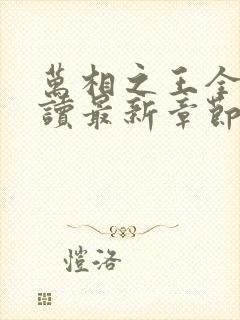 萬相之王全
讀最新章節
愷洛